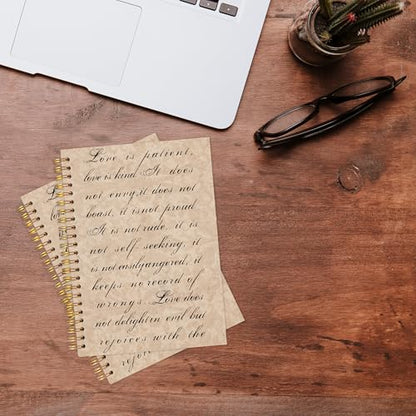 Love is patient,
love is kind. It does
not envy, it does not
boast, it is not proud.
It is not rude, it is
not self seeking, it
is not easily angered, it
keeps no record of
wrongs. Love does
not delight in evil but
rejoices with the
rejoi